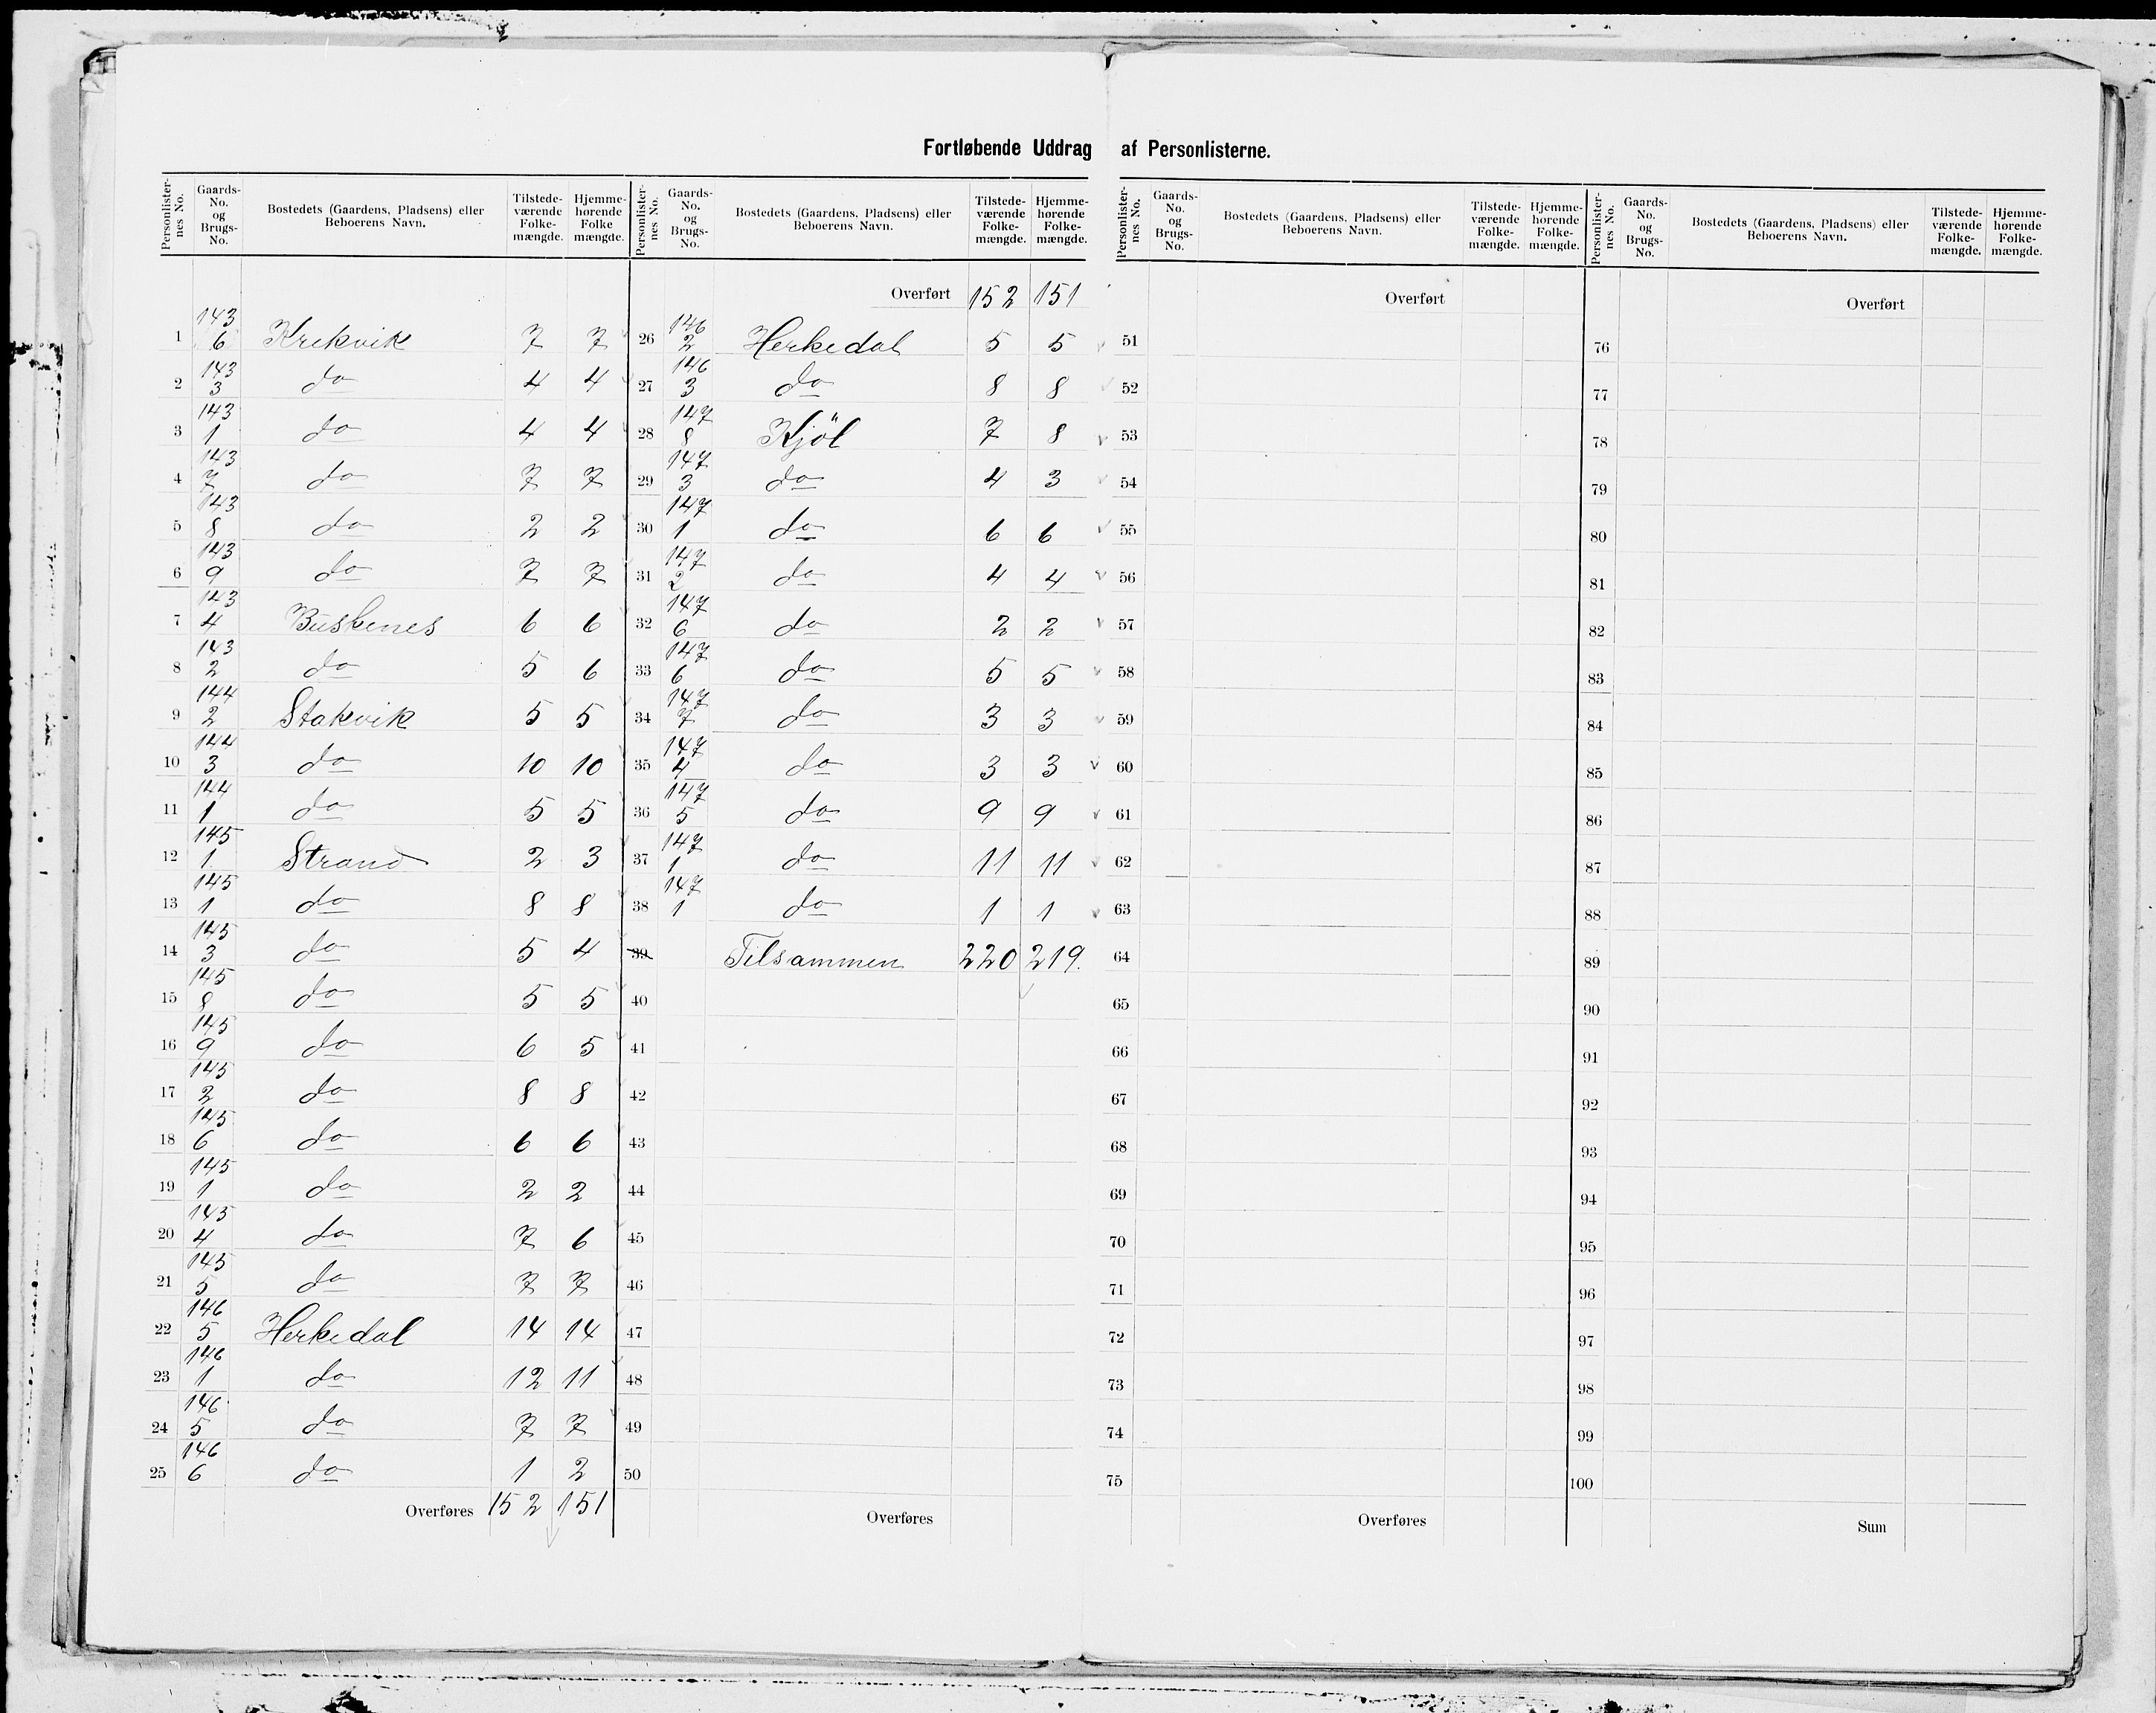 Fortløbende Uddrag af Personlisterne.
Personlister-nes No. | Gaards-No. og Brugs-No. | Bostedets (Gaardens, Pladsens) eller Beboerens Navn. | Tilstede-værende Folke-mængde. | Hjemme-hørende Folke mængde.
1 143/6 Krekvik 7 7
2 143/3 do 4 4
3 143/1 do 4 4
4 143/7 do 7 7
5 143/8 do 2 2
6 143/9 do 7 7
7 143/4 Buskenes 6 6
8 143/2 do 5 6
9 144/2 Stakvik 5 5
10 144/3 do 10 10
11 144/1 do 5 5
12 145/1 Strand 2 3
13 145/1 do 8 8
14 145/3 do 5 4
15 145/8 do 5 5
16 145/9 do 6 5
17 145/2 do 8 8
18 145/6 do 6 6
19 145/1 do 2 2
20 145/4 do 7 6
21 145/5 do 7 7
22 146/5 Herkedal 14 14
23 146/1 do 12 11
24 146/5 do 7 7
25 146/6 do 1 2
Overføres 152 151
Personlister-nes No. | Gaards-No. og Brugs-No. | Bostedets (Gaardens, Pladsens) eller Beboerens Navn. | Tilstede-værende Folke-mængde. | Hjemme-hørende Folke-mængde.
Overført 152 151
26 146/2 Herkedal 5 5
27 146/3 do 8 8
28 147/8 Kjöl 7 8
29 147/3 do 4 3
30 147/1 do 6 6
31 147/2 do 4 4
32 147/6 do 2 2
33 147/6 do 5 5
34 147/7 do 3 3
35 147/4 do 3 3
36 147/5 do 9 9
37 147/1 do 11 11
38 147/1 do 1 1
39 Tilsammen 220 219.
40
41
42
43
44
45
46
47
48
49
50
Overføres
Personlister-nes No. | Gaards-No. og Brugs-No. | Bostedets (Gaardens, Pladsens) eller Beboerens Navn. | Tilstede-værende Folke-mængde. | Hjemme-hørende Folke-mængde.
Overført
51
52
53
54
55
56
57
58
59
60
61
62
63
64
65
66
67
68
69
70
71
72
73
74
75
Overføres
Personlister-nes No. | Gaards-No. og Brugs-No. | Bostedets (Gaardens, Pladsens) eller Beboerens Navn. | Tilstede-værende Folke-mængde. | Hjemme-hørende Folke-mængde.
Overført
76
77
78
79
80
81
82
83
84
85
86
87
88
89
90
91
92
93
94
95
96
97
98
99
100
Sum